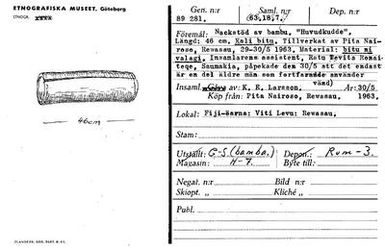 ETNOGRAFISKA MUSEET, Göteborg
ETNOGR.
46cm
Gen. n:r
89 281.
Saml. n:r
(63,18,7.)
Dep. n:r
Föremål: Nackstöd av bambu, "Huvudkudde".
Längd: 46 cm, Kali bitu. Tillverkat av Pita Nai-
roso, Rewasau, 29-30/5 1963, Material: bitu ni
valagi. Insamlarens assistent, Ratu Tevita
teqe, Saumakia, påpekade den 30/5 att det endast
är en del äldre män som fortfarande använder
Insaml. av: K. E. Larsson. vänd) År: 30/5
Köp från: Pita Nairoso, Rewasau, 1963.
Lokal: Fiji-öarna: Viti Levu: Rewasau.
Stam:
Utställt: G-S (bambu.)
Depon.: Rum-3.
Magasin: H-7.
Byte till:
Negat. n:r
Bild n:r
Skiopt. »
Kliché »
Publ.